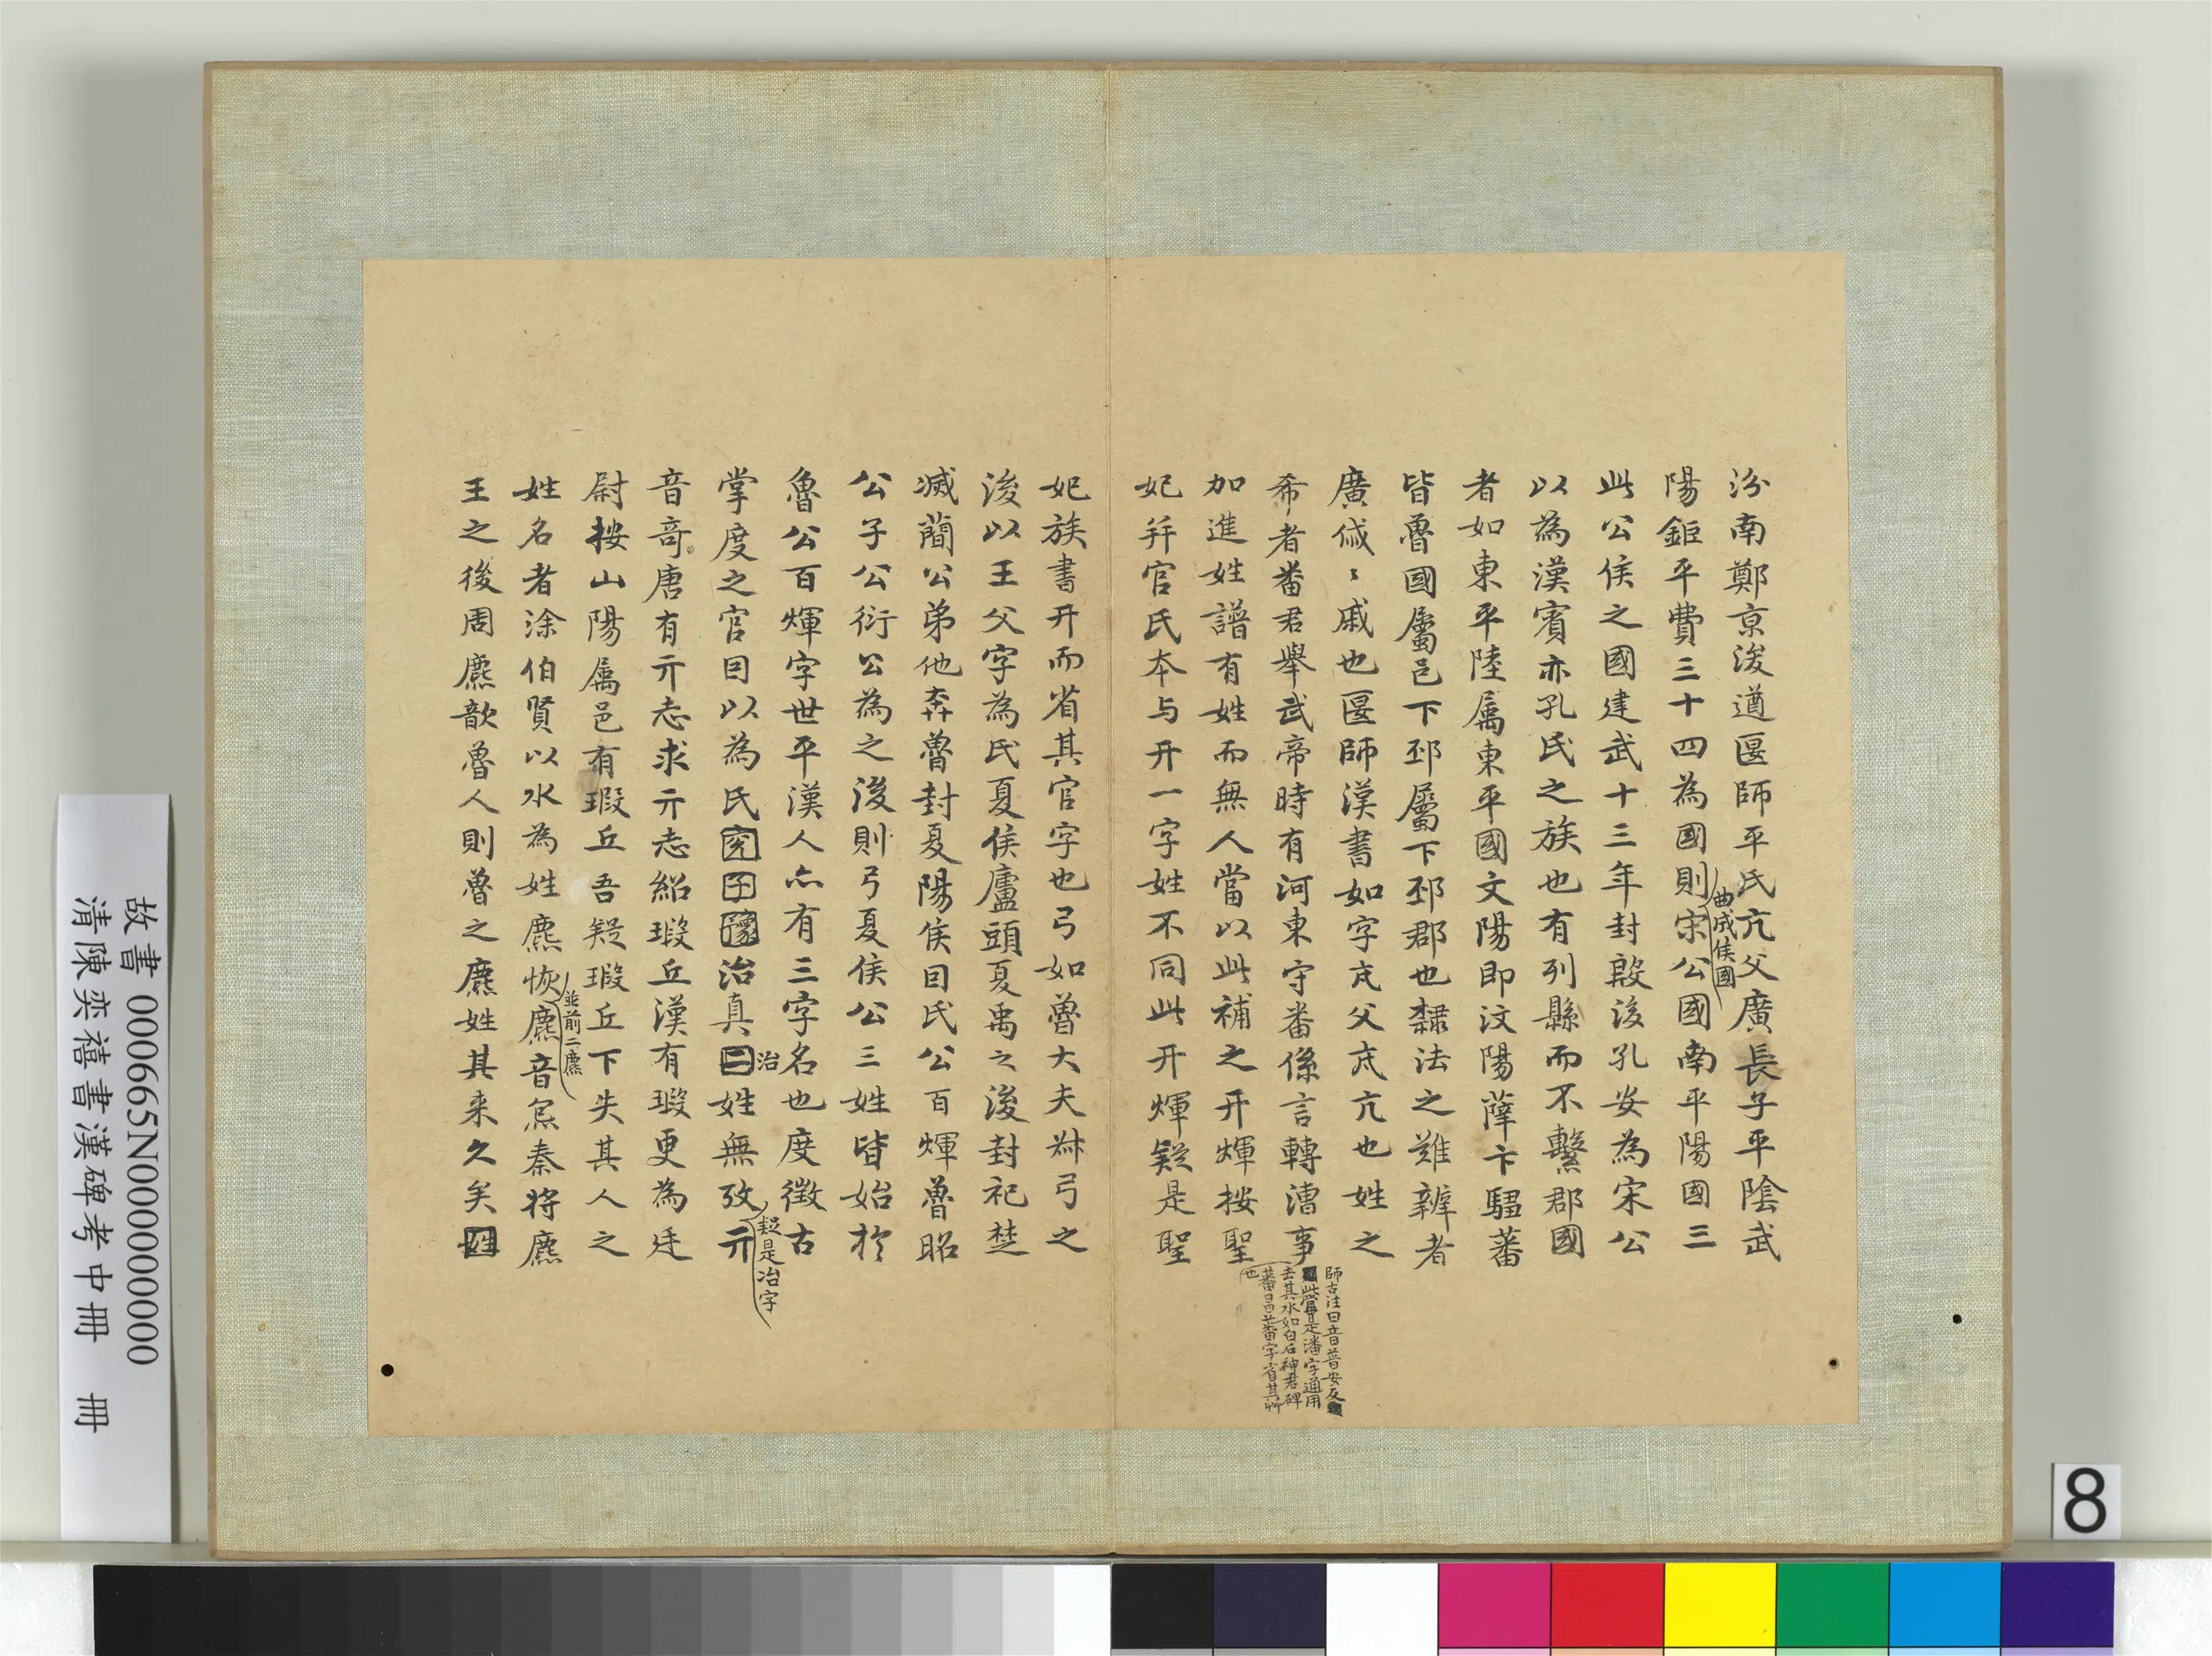 汾南鄭京浚遒匽師平氏亢父廣長子平陰武
陽鉅平費三十四為國則宋公國南平陽國三
曲成侯國
此公侯之國建武十三年封殷後孔安為宋公
以為漢賓亦孔氏之族也有列縣而不繫郡國
者如東平陸屬東平國文陽即汶陽薛卞騶蕃
皆魯國屬邑下邳屬下邳郡也隸法之難辨者
廣傶傶戚也匽師漢書如字亢父亢也姓之
希者番君舉武帝時有河東守番係言轉漕事
師古注曰音普安反
此當是潘字通用
去其水如白石神君碑
蕃昌蕃字省其艸
也
加進姓譜有姓而無人當以此補之幵煇按聖
妃幷官氏本与幵一字姓不同此幵煇疑是聖
妃族書幵而省其官字也弓如魯大夫叔弓之
後以王父字為氏夏侯廬頭夏禹之後封杞楚
滅簡公弟佗奔魯封夏陽侯因氏公百煇魯昭
公子公衍公為之後則弓夏侯公三姓皆始於
魯公百煇字世平漢人亦有三字名也度徵古
掌度之官因以為氏治真姓無攷亓
治
疑是冶字
音竒唐有亓志求亓志紹瑕丘漢有瑕更為廷
尉按山陽屬邑有瑕丘吾疑瑕丘下失其人之
姓名者涂伯賢以水為姓麃恢麃音炰秦將麃
並前二麃
王之後周麃歆魯人則魯之麃姓其来久矣
故書 000665N000000000
清陳奕禧書漢碑考中冊 冊
8